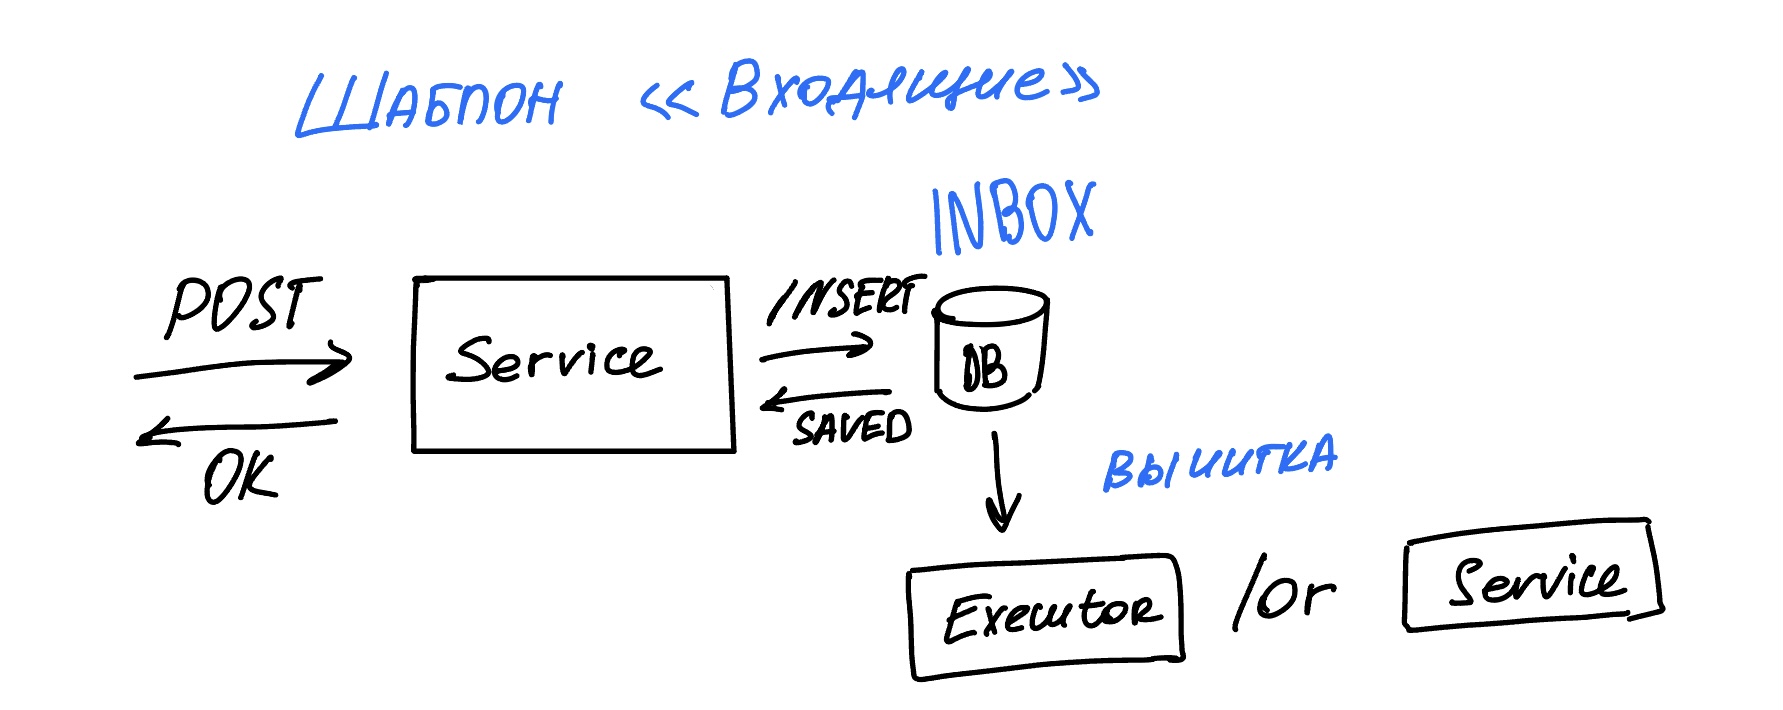 ШАБЛОН «Входящие»
INBOX
POST
INSERT
Service
DB
SAVED
OK
ВЫЧИТКА
Executor /or Service